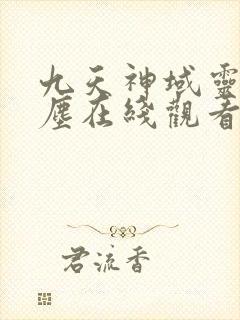 九天神域靈
塵在綫觀看
君流香